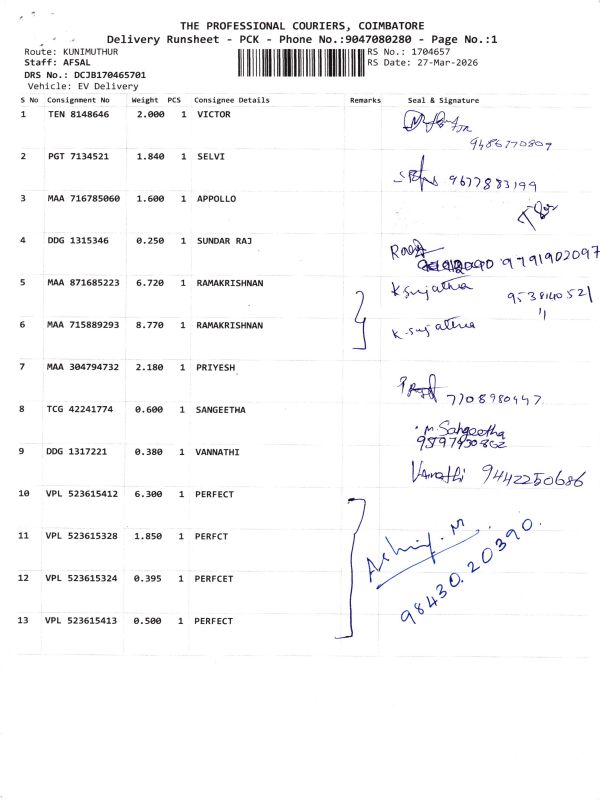 THE PROFESSIONAL COURIERS, COIMBATORE
Delivery Runsheet - PCK - Phone No.:9047080280 - Page No.:1
Route: KUNIMUTHUR
RS No.: 1704657
Staff: AFSAL
RS Date: 27-Mar-2026
DRS No.: DCJB170465701
Vehicle: EV Delivery
S No Consignment No Weight PCS Consignee Details Remarks Seal & Signature
1 TEN 8148646 2.000 1 VICTOR
9486770807
2 PGT 7134521 1.840 1 SELVI
9677883199
3 MAA 716785060 1.600 1 APPOLLO
4 DDG 1315346 0.250 1 SUNDAR RAJ
9791902097
5 MAA 871685223 6.720 1 RAMAKRISHNAN K sujatha
9538140521
6 MAA 715889293 8.770 1 RAMAKRISHNAN K-sujatha "
7 MAA 304794732 2.180 1 PRIYESH
7708980447
8 TCG 42241774 0.600 1 SANGEETHA M. Sangeetha
9597450862
9 DDG 1317221 0.380 1 VANNATHI Vannathi 9442250686
10 VPL 523615412 6.300 1 PERFECT
11 VPL 523615328 1.850 1 PERFCT
12 VPL 523615324 0.395 1 PERFCET
98430.20390.
13 VPL 523615413 0.500 1 PERFECT